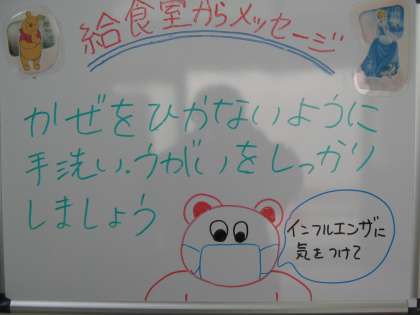 給食室からメッセージ
かぜをひかないように
手洗い.うがいをしっかり
しましょう
インフルエンザに
気をつけて